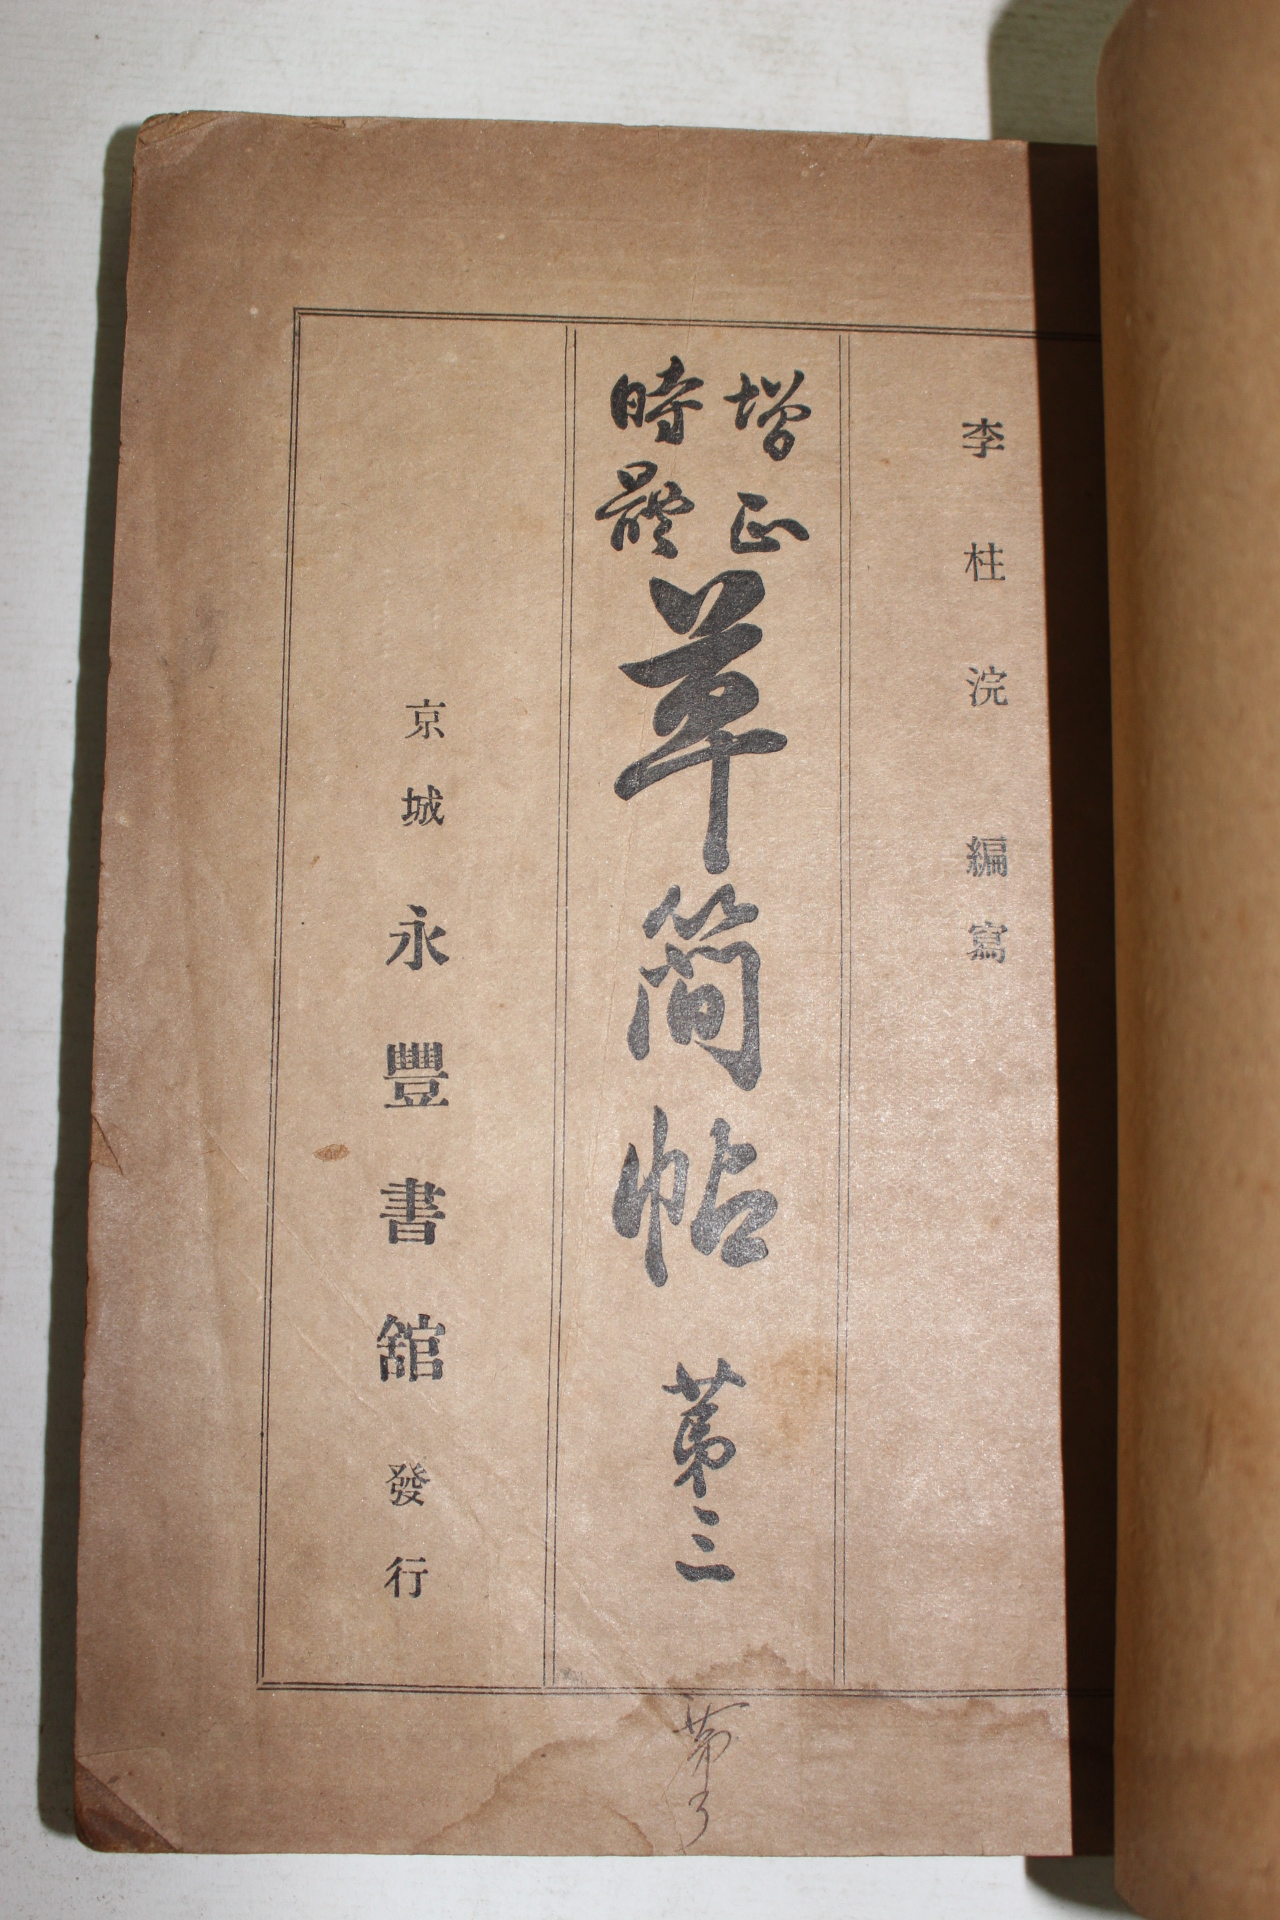 李柱浣 編寫
增正
時體
草簡帖 第三
京城 永豐書舘 發行
第3